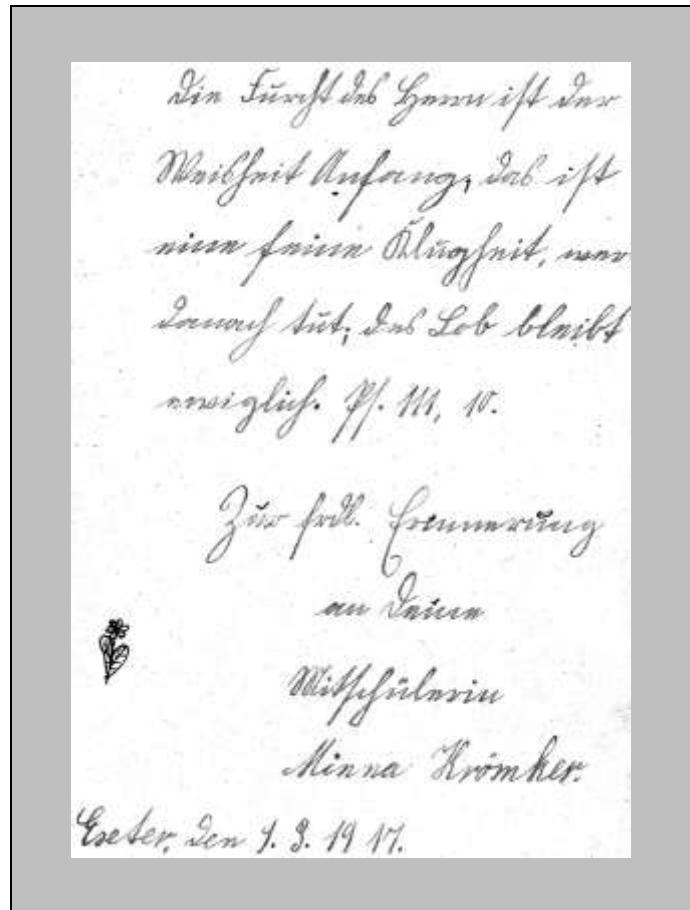 Die Furcht des Herrn ist der
Weisheit Anfang, das ist
eine feine Klugheit, wer
danach tut; des Lob bleibt
ewiglich. Ps. 111, 10.
Zur frdl. Erinnerung
an Deine
Mitschülerin
Minna Krömker.
Exeter, den 9. 3. 19 17.